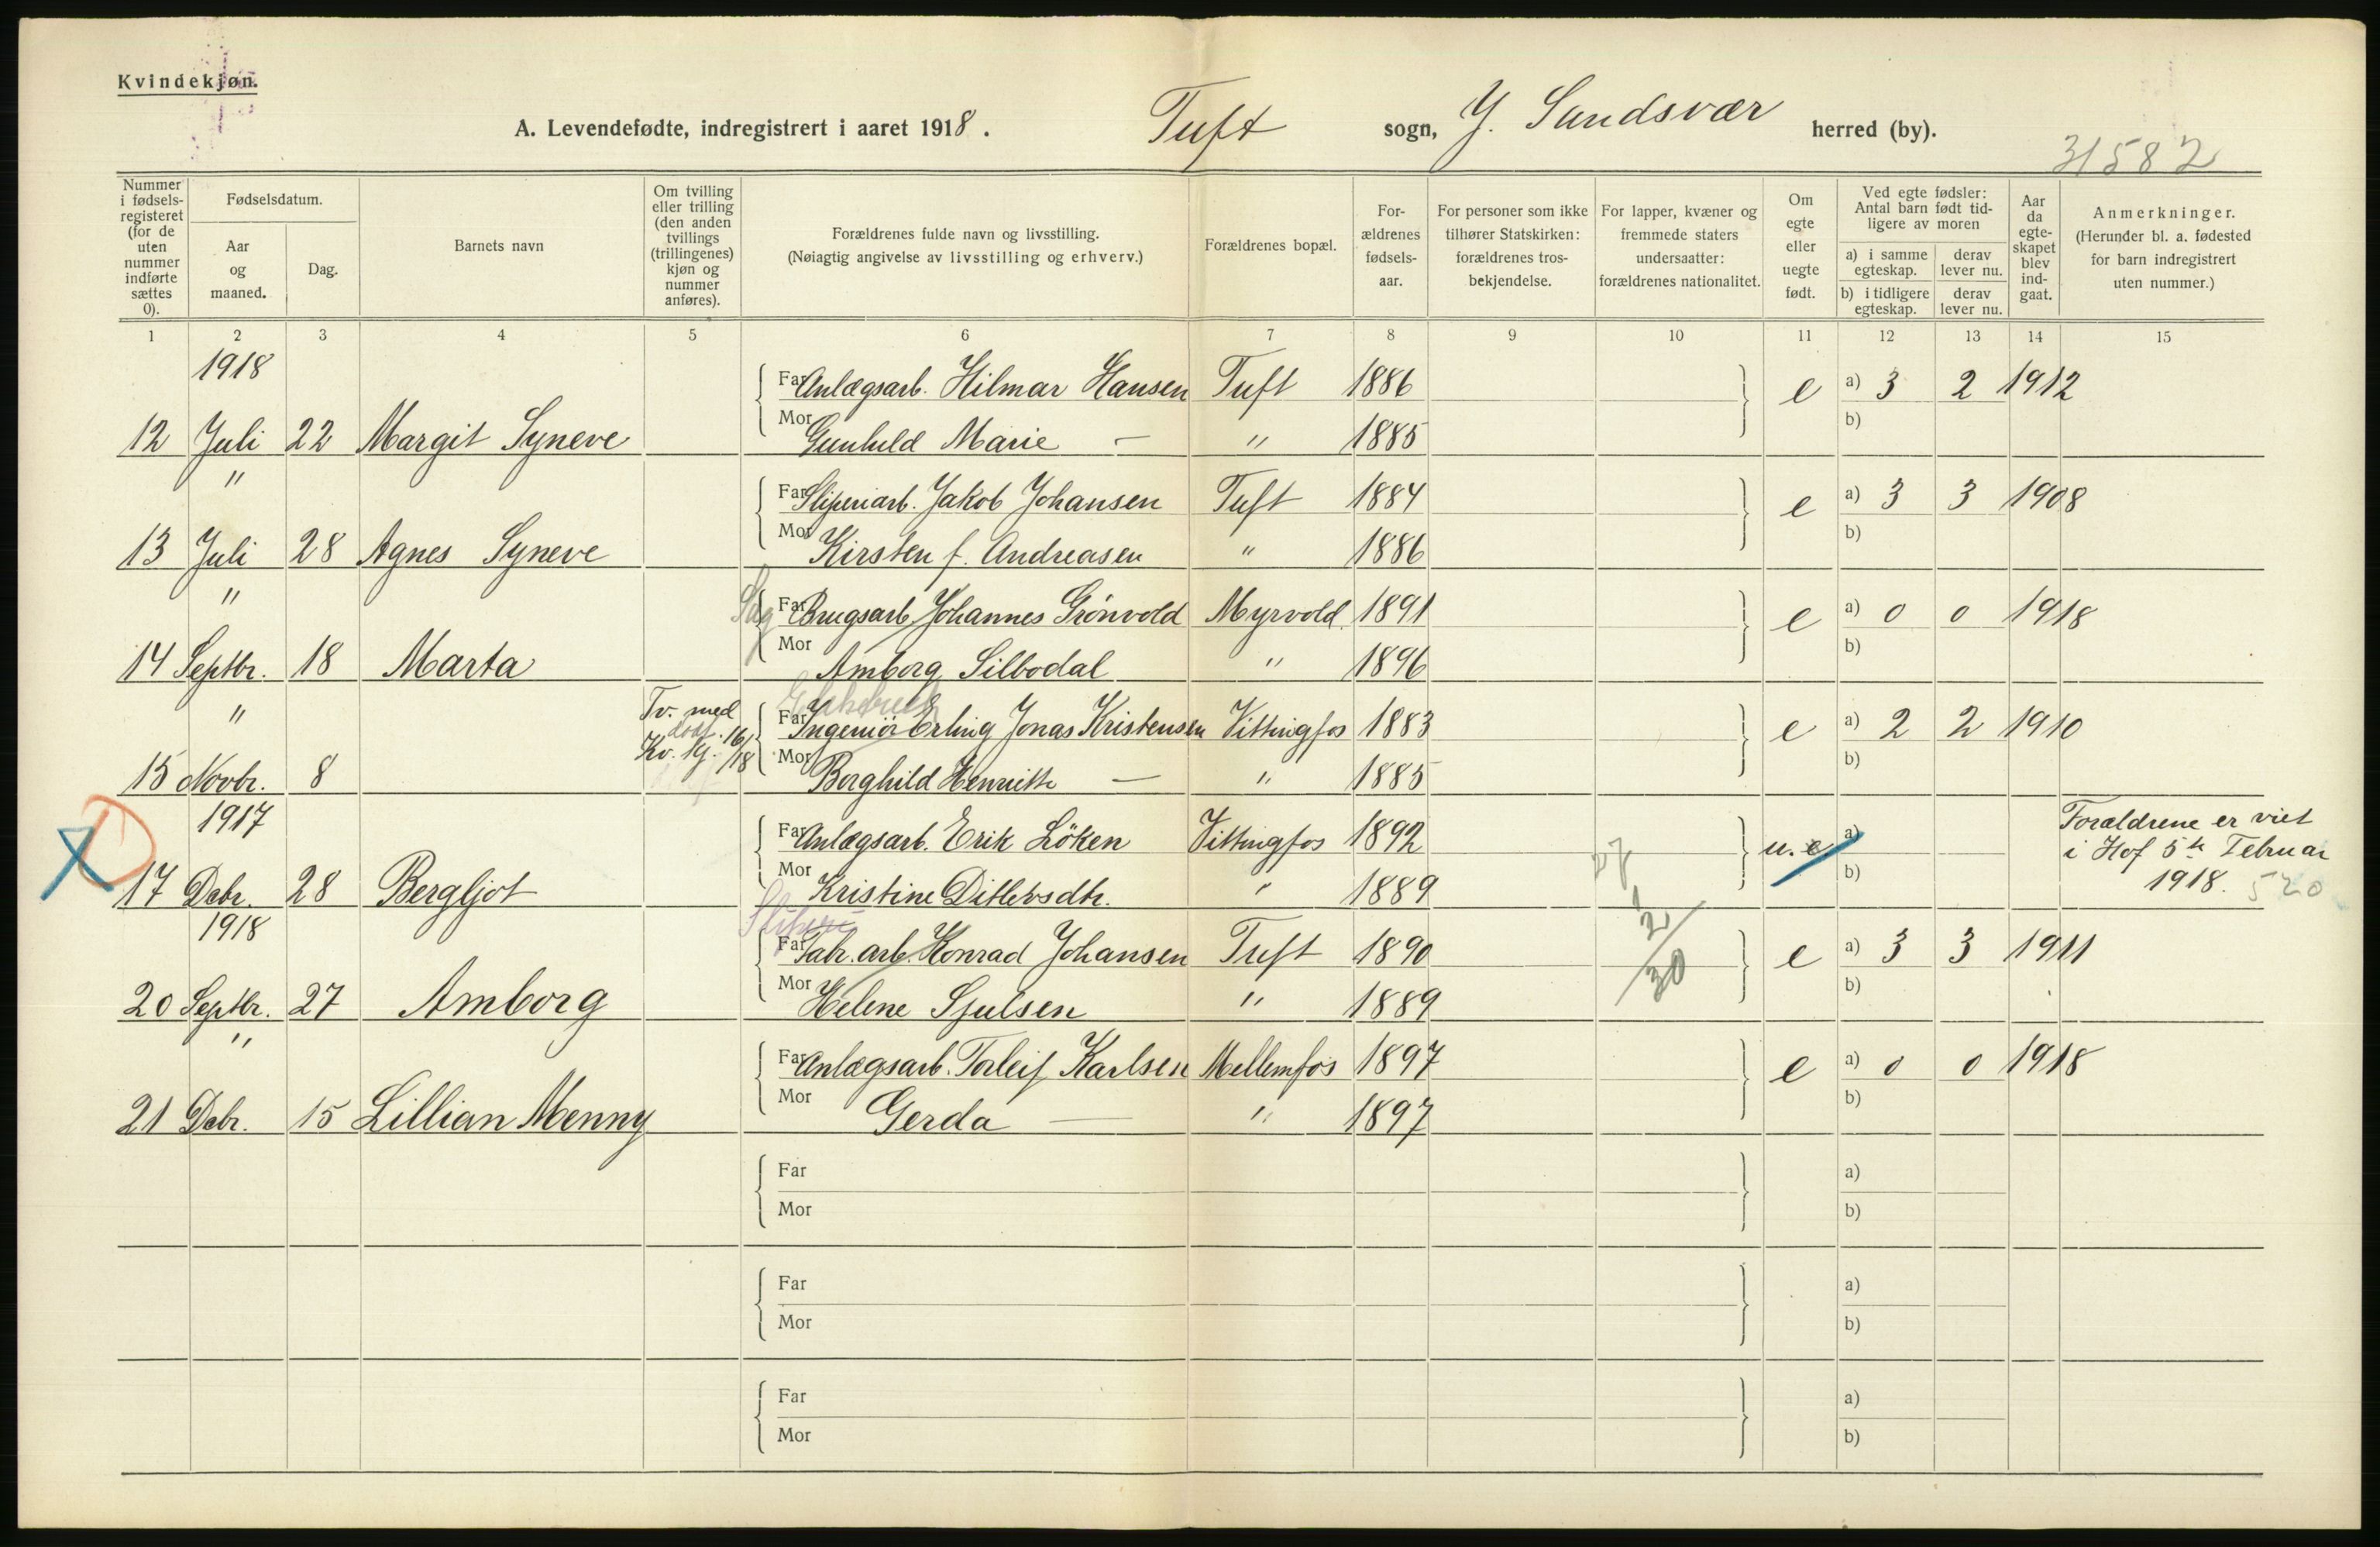 Kvindekjøn.
A. Levendefødte, indregistrert i aaret 1918. Tuft sogn, Y. Sandsvær herred (by).
31582
Nummer i fødsels-registeret (for de uten nummer indførte sættes 0).
Fødselsdatum.
Aar og maaned.
Dag.
Barnets navn
Om tvilling eller trilling (den anden tvillings (trillingenes) kjøn og nummer anføres).
Forældrenes fulde navn og livsstilling.
(Nøiagtig angivelse av livsstilling og erhverv.)
Forældrenes bopæl.
For-ældrenes fødsels-aar.
For personer som ikke tilhører Statskirken: forældrenes tros-bekjendelse.
For lapper, kvæner og fremmede staters undersaatter: forældrenes nationalitet.
Om egte eller uegte født.
Ved egte fødsler: Antal barn født tid-ligere av moren
a) i samme egteskap.
derav lever nu.
b) i tidligere egteskap.
derav lever nu.
Aar da egte-skapet blev ind-gaat.
Anmerkninger.
(Herunder bl. a. fødested for barn indregistrert uten nummer.)
1 2 3 4 5 6 7 8 9 10 11 12 13 14 15
1918
Far Anlægsarb. Hilmar Hansen Tuft 1886 e a) 3 2 1912
12 Juli 22 Margit Syneve Mor Gunhild Marie — " 1885 b)
"
Far Sliperiarb. Jakob Johansen Tuft 1884 e a) 3 3 1908
13 Juli 28 Agnes Syneve Mor Kirsten f. Andreasen " 1886 b)
"
Sag
Far Brugsarb. Johannes Grönvold Myrvold 1891 e a) 0 0 1918
14 Septbr. 18 Marta Mor Amborg Silbodal " 1896 b)
"
Tv. med
dødf. 16/18
Kv. kj.
Far Ingeniör Erling Jonas Kristensen Vittingfos 1883 e a) 2 2 1910
15 Novbr. 8 Mor Borghild Henriette — " 1885 b)
1917
Far Anlægsarb. Erik Löken Vittingfos 1892 u. e a) Forældrene er viet
i Hof 5te Februar
1918. 520
17 Debr. 28 Bergljot Mor Kristine Ditlevsdtr. " 1889 b)
27
1918
Sliperi
Far Fabr. arb. Konrad Johansen Tuft 1890 2/30 e a) 3 3 1911
20 Septbr. 27 Amborg Mor Helene Sjulsen " 1889 b)
"
Far Anlægsarb. Torleif Karlsen Mellemfos 1897 e a) 0 0 1918
21 Debr. 15 Lillian Menny Mor Gerda — " 1897 b)
Far a)
Mor b)
Far a)
Mor b)
Far a)
Mor b)